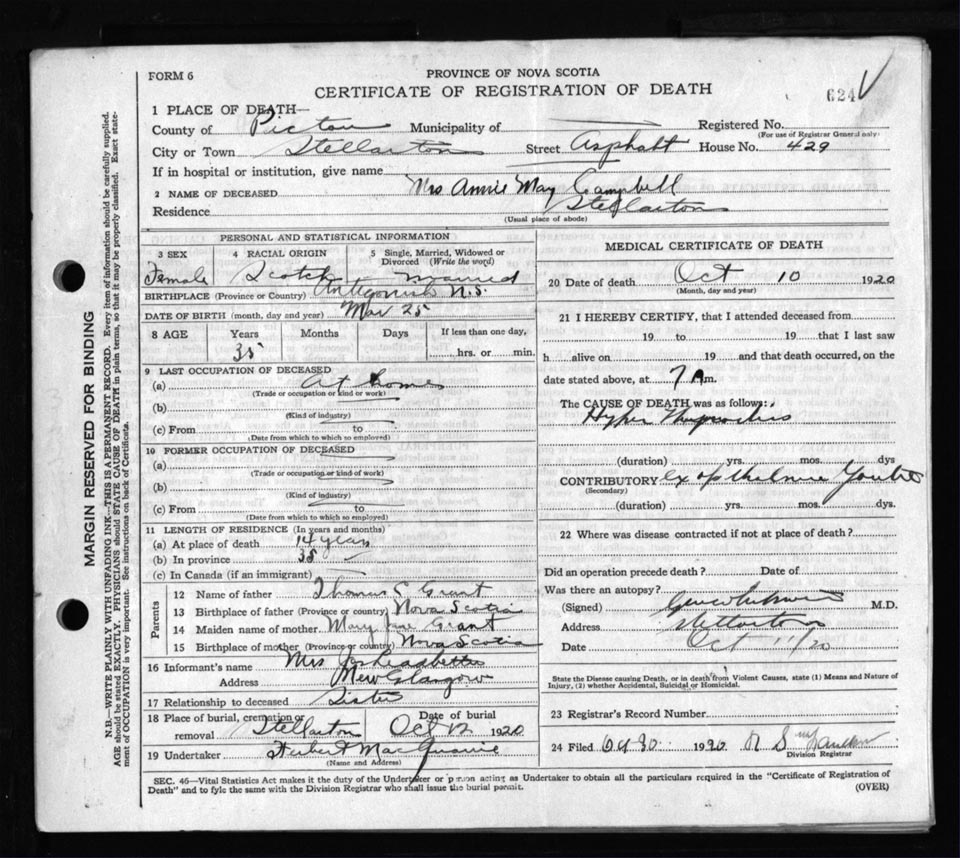 FORM 6
PROVINCE OF NOVA SCOTIA
CERTIFICATE OF REGISTRATION OF DEATH
624
1 PLACE OF DEATH—
County of Pictou Municipality of Registered No.
(For use of Registrar General only)
City or Town Stellarton Street Asphalt House No. 429
If in hospital or institution, give name
2 NAME OF DECEASED Mrs Annie May Campbell
Residence Stellarton
(Usual place of abode)
PERSONAL AND STATISTICAL INFORMATION
3 SEX 4 RACIAL ORIGIN 5 Single, Married, Widowed or Divorced (Write the word)
Female Scotch Married
BIRTHPLACE (Province or Country) Antigonish N.S.
DATE OF BIRTH (month, day and year) Mar 25
8 AGE Years Months Days If less than one day,
35 hrs. or min.
9 LAST OCCUPATION OF DECEASED
(a) At home
(Trade or occupation or kind or work)
(b)
(Kind of industry)
(c) From to
(Date from which to which so employed)
10 FORMER OCCUPATION OF DECEASED
(a)
(Trade or occupation or kind of work)
(b)
(Kind of industry)
(c) From to
(Date from which to which so employed)
11 LENGTH OF RESIDENCE (In years and months)
(a) At place of death 14 years
(b) In province 35
(c) In Canada (if an immigrant)
Parents
12 Name of father Thomas Grant
13 Birthplace of father (Province or country) Nova Scotia
14 Maiden name of mother Mary Jane Grant
15 Birthplace of mother (Province or country) Nova Scotia
16 Informant's name Mrs
Address New Glasgow
17 Relationship to deceased Sister
18 Place of burial, cremation or removal Stellarton Date of burial Oct 12 1920
19 Undertaker Herbert MacQuarrie
(Name and Address)
MEDICAL CERTIFICATE OF DEATH
20 Date of death Oct 10 1920
(Month, day and year)
21 I HEREBY CERTIFY, that I attended deceased from
19 to 19 that I last saw
h alive on 19 and that death occurred, on the
date stated above, at 7 A m.
The CAUSE OF DEATH was as follows:
Hyper
(duration) yrs. mos. dys
CONTRIBUTORY Exopthalmic Goutre
(Secondary)
(duration) yrs. mos. dys.
22 Where was disease contracted if not at place of death?
Did an operation precede death? Date of
Was there an autopsy?
(Signed) M.D.
Address Stellarton
Date Oct 11/20
State the Disease causing Death, or in death from Violent Causes, state (1) Means and Nature of
Injury, (2) whether Accidental, Suicidal or Homicidal.
23 Registrar's Record Number
24 Filed 1920
Division Registrar
SEC. 46—Vital Statistics Act makes it the duty of the Undertaker or person acting as Undertaker to obtain all the particulars required in the "Certificate of Registration of
Death" and to fyle the same with the Division Registrar who shall issue the burial permit.
(OVER)
MARGIN RESERVED FOR BINDING
N.B.—WRITE PLAINLY WITH UNFADING INK—THIS IS A PERMANENT RECORD. Every item of information should be carefully supplied.
AGE should be stated EXACTLY. PHYSICIANS should STATE CAUSE OF DEATH in plain terms, so that it may be properly classified. Exact state-
ment of OCCUPATION is very important. See instructions on back of Certificate.